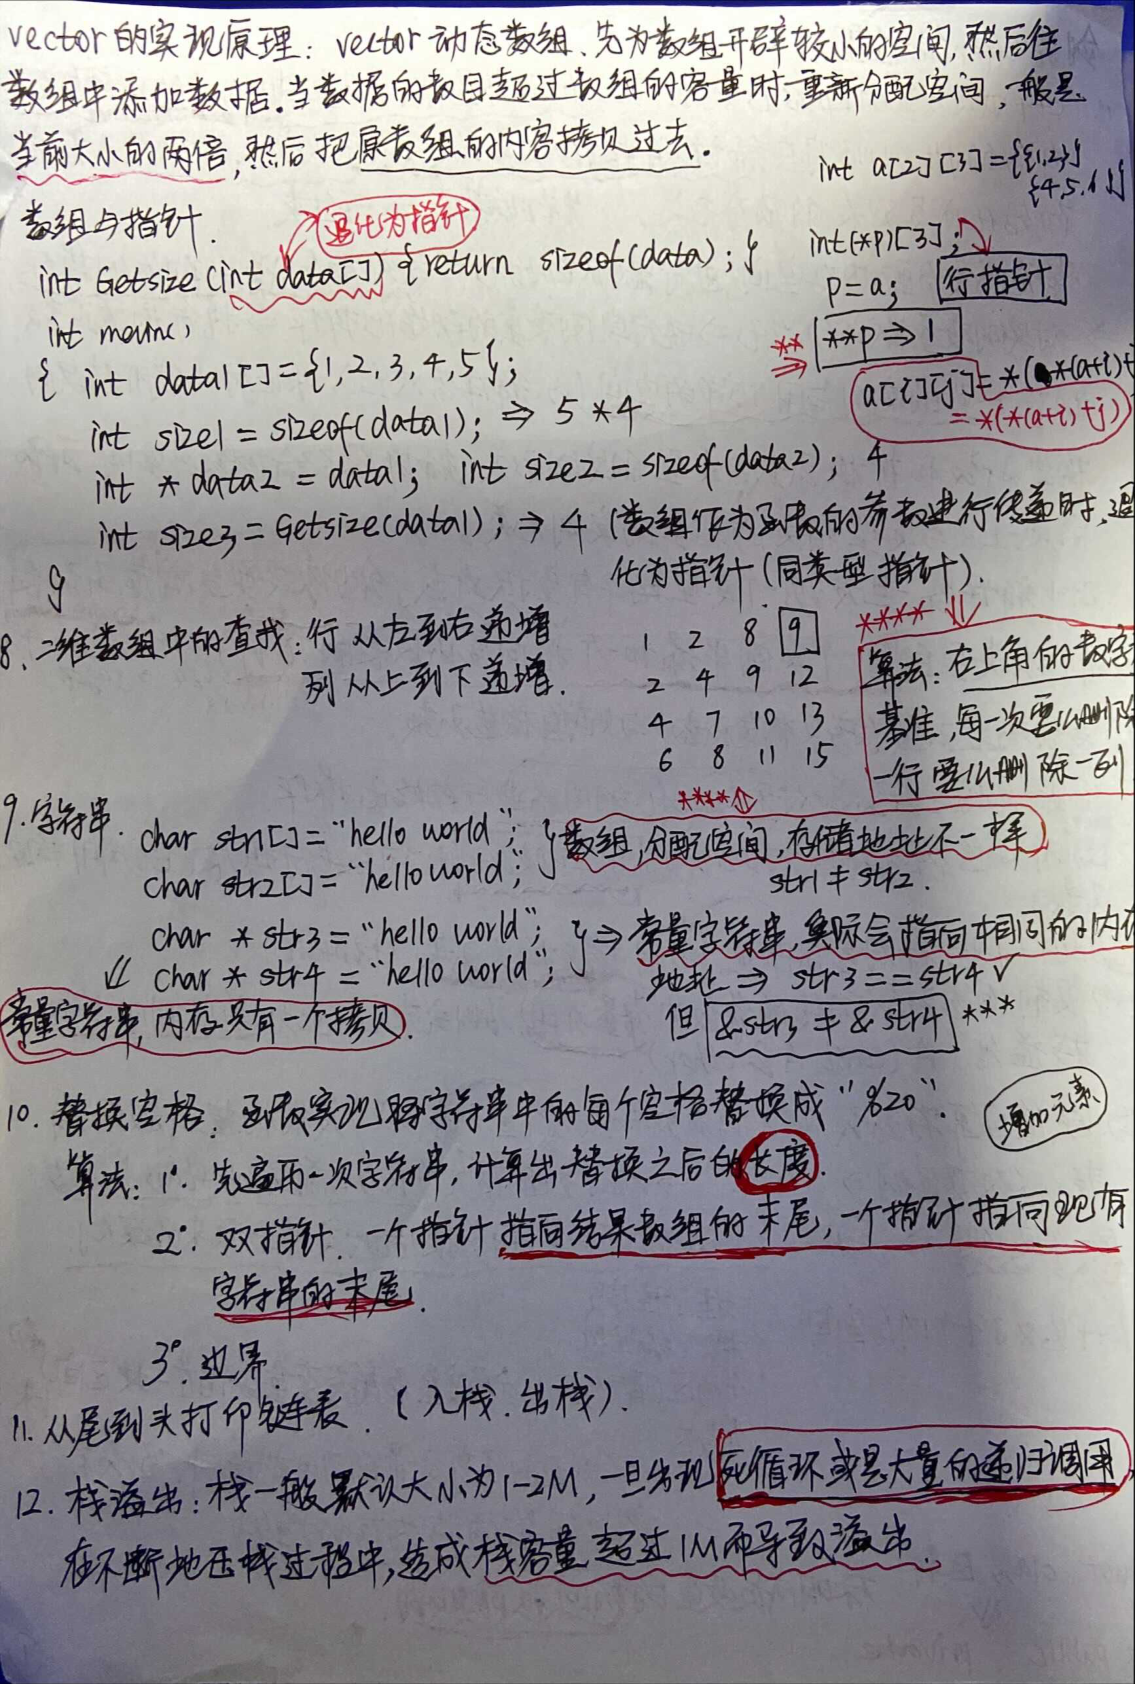 vector的实现原理：vector动态数组、先为数组开辟较小的空间，然后往
数组中添加数据。当数据的数目超过数组的容量时，重新分配空间，一般是
当前大小的两倍，然后把原数组的内容拷贝过去。
int a[2][3]={{1,2,3}
{4,5,6}}
数组与指针.
退化为指针
int Getsize(int data[]) {return sizeof(data);}
int(*p)[3];
p=a; 行指针
int main()
** **p⇒1
{ int data1[]={1,2,3,4,5};
a[i][j]=*(*(a+i)+j
=*(*(a+i)+j)
int size1=sizeof(data1); ⇒ 5*4
int *data2=data1; int size2=sizeof(data2); 4
int size3=Getsize(data1); ⇒ 4 (数组作为函数的参数进行传递时，退
化为指针(同类型指针).
}
8. 二维数组中的查找：行从左到右递增
列从上到下递增.
1 2 8 9
2 4 9 12
4 7 10 13
6 8 11 15
**** ⇓
算法：右上角的数字
基准，每一次要么删除
一行要么删除一列
9. 字符串.
char str1[]="hello world";
char str2[]="hello world";
} 数组，分配空间，存储地址不一样
****
str1≠str2.
char *str3="hello world";
char *str4="hello world";
} ⇒ 常量字符串，实际会指向相同的内存
地址 ⇒ str3==str4 ✓
常量字符串，内存只有一个拷贝.
但 &str3≠&str4 ***
10. 替换空格：函数实现将字符串中的每个空格替换成"%20".
增加元素
算法：1°. 先遍历一次字符串，计算出替换之后的长度.
2°. 双指针. 一个指针指向结果数组的末尾，一个指针指向现有
字符串的末尾.
3°. 边界.
11. 从尾到头打印链表. (入栈. 出栈).
12. 栈溢出：栈一般默认大小为1-2M，一旦出现死循环或是大量的递归调用，
在不断地压栈过程中，造成栈容量超过1M而导致溢出.